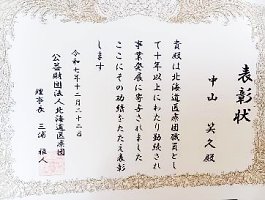 表彰状
中山 英久殿
貴殿は北海道医療団職員とし
て十年以上にわたり勤続され
事業発展に寄与されました
ここにその功績をたたえ表彰
します
令和七年十二月二十二日
公益財団法人北海道医療団
理事長 三浦 祖人